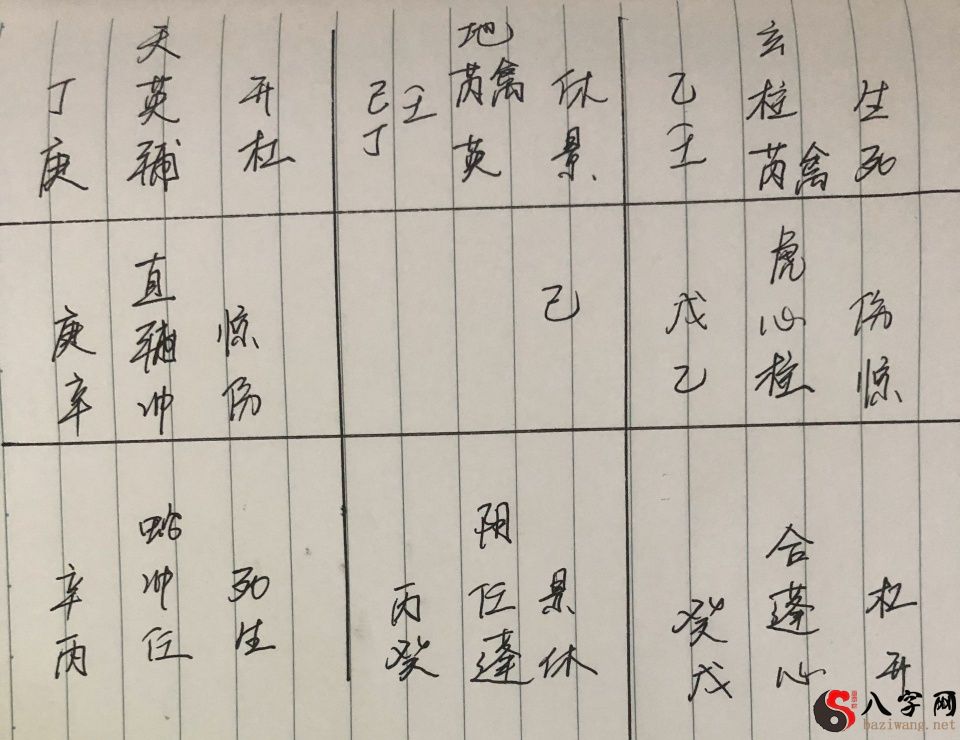 天 地 玄
丁 英 开 己壬 芮禽 休 乙 柱 生
庚 辅 杜 丁 英 景 壬 芮禽 死
直 虎
庚 辅 惊 己 戊 心 伤
辛 冲 伤 乙 柱 惊
蛤 阴 合
辛 冲 死 丙 任 景 癸 蓬 杜
丙 任 生 癸 蓬 休 戊 心 开
八字网
baziwang.net